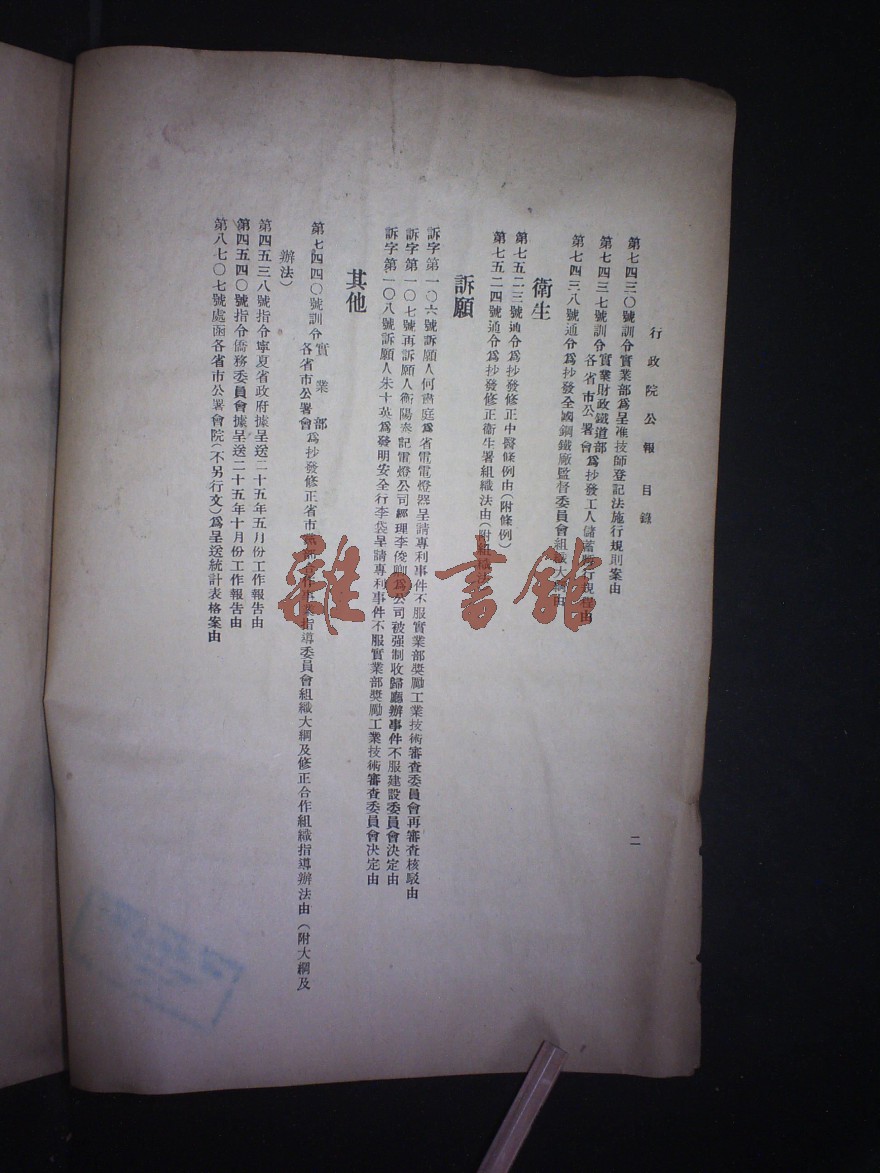 行政院公報 目錄
二
第七四三〇號訓令實業部爲呈准技師登記法施行規則案由
第七四三七號訓令實業財政鐵道部各省市公署會爲抄發工人儲蓄暫行規程由
第七四三八號通令爲抄發全國鋼鐵廠監督委員會組織大綱由
衛生
第七五二三號通令爲抄發修正中醫條例由(附條例)
第七五二四號通令爲抄發修正衞生署組織法由(附組織法)
訴願
訴字第一〇六號訴願人何肅庭爲省電電燈器呈請專利事件不服實業部獎勵工業技術審查委員會再審查核駁由
訴字第一〇七號再訴願人衡陽泰記電燈公司經理李俊卿爲公司被强制收歸廳辦事件不服建設委員會決定由
訴字第一〇八號訴願人朱十英爲發明安全行李袋呈請專利事件不服實業部獎勵工業技術審查委員會決定由
其他
第七四四〇號訓令實業部各省市公署會爲抄發修正省市指導委員會組織大綱及修正合作組織指導辦法由(附大綱及
辦法)
第四五三八號指令寧夏省政府據呈送二十五年五月份工作報告由
第四五四〇號指令僑務委員會據呈送二十五年十月份工作報告由
第八七〇七號處函各省市公署會院(不另行文)爲呈送統計表格案由
雜·書館